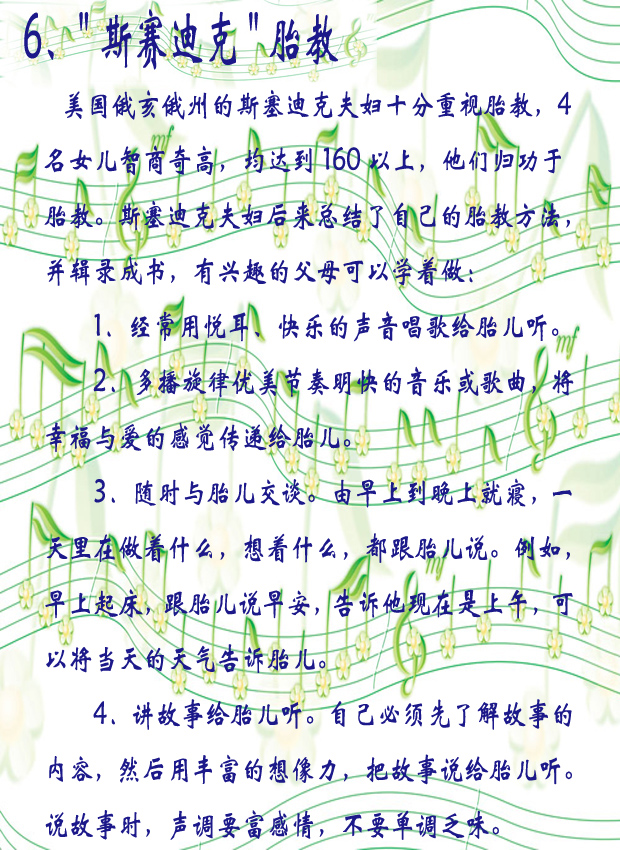 6、"斯赛迪克"胎教
美国俄亥俄州的斯塞迪克夫妇十分重视胎教，4
名女儿智商奇高，均达到160以上，他们归功于
胎教。斯塞迪克夫妇后来总结了自己的胎教方法，
并辑录成书，有兴趣的父母可以学着做：
1、经常用悦耳、快乐的声音唱歌给胎儿听。
2、多播旋律优美节奏明快的音乐或歌曲，将
幸福与爱的感觉传递给胎儿。
3、随时与胎儿交谈。由早上到晚上就寝，一
天里在做着什么，想着什么，都跟胎儿说。例如，
早上起床，跟胎儿说早安，告诉他现在是上午，可
以将当天的天气告诉胎儿。
4、讲故事给胎儿听。自己必须先了解故事的
内容，然后用丰富的想像力，把故事说给胎儿听。
说故事时，声调要富感情，不要单调乏味。